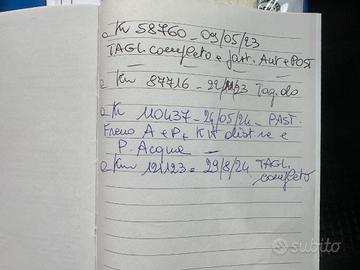 Km 58760 - 09/05/23
TAGL. completo e past. Ant e POST
Km 87716 - 22/11/23 Tagl.do
Km 110437 - 24/05/24 - PAST.
Freno A e P + Kit distr.ne e
P. Acqua -
Km 121123 = 29/8/24 TAGL.
completo
subito